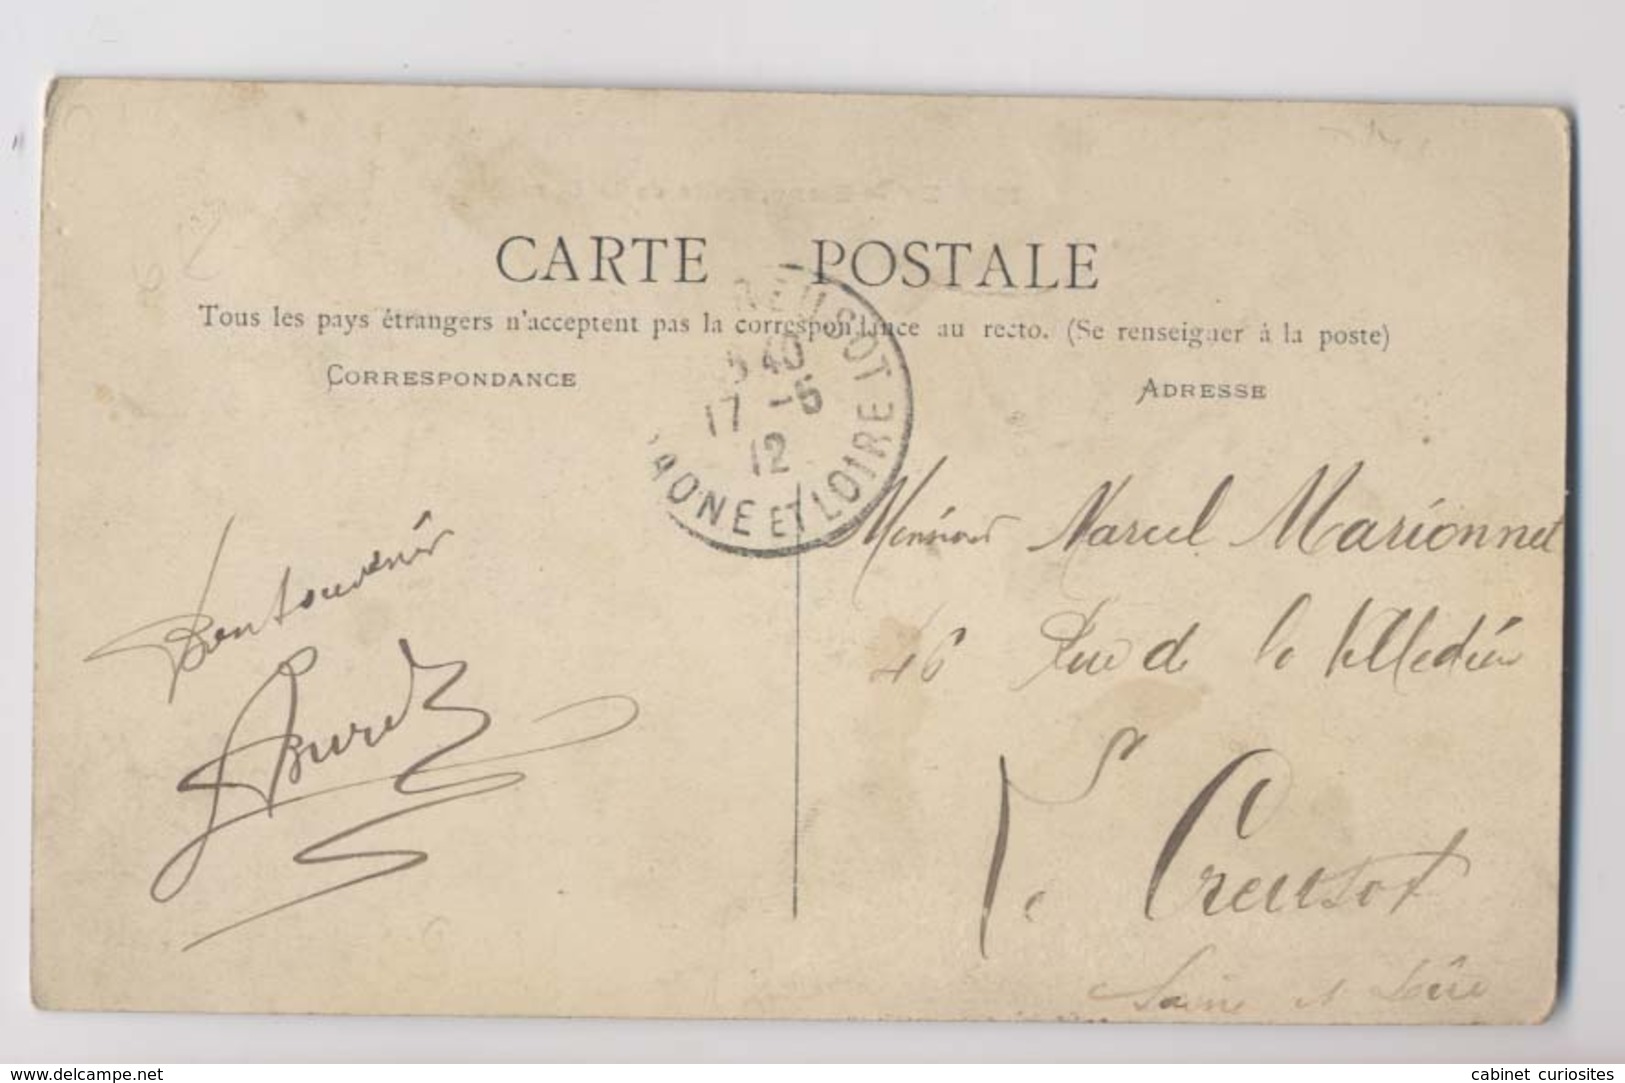 CARTE POSTALE
Tous les pays étrangers n'acceptent pas la correspondance au recto. (Se renseigner à la poste)
CORRESPONDANCE
ADRESSE
REUSOT
40
17 -5
12
AONE ET LOIRE
Bon Souvenir
Burel
Monsieur Marcel Marionnet
46 Rue de la Villedieu
le Creusot
Saône et Loire
www.delcampe.net
cabinet curiosites